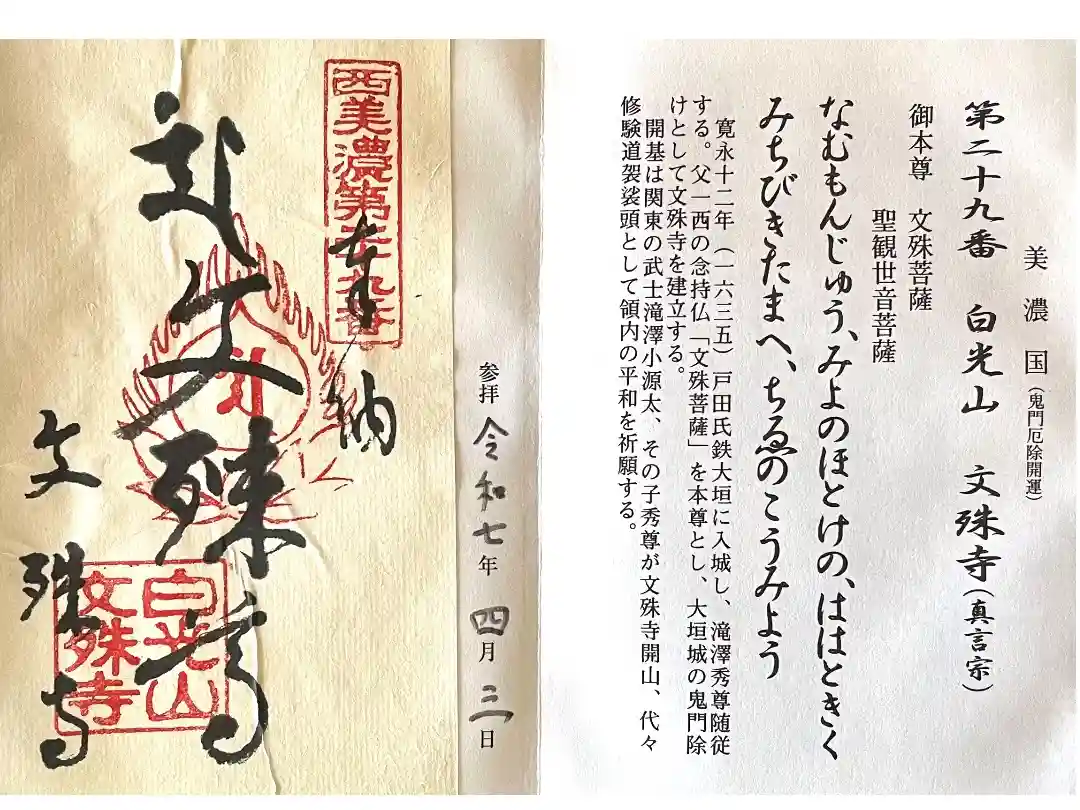 美濃国(鬼門厄除開運)
第二十九番 白光山 文殊寺(真言宗)
御本尊 文殊菩薩
聖観世音菩薩
なむもんじゅう、みよのほとけの、ははときく
みちびきたまへ、ちゑのこうみよう
寛永十二年(一六三五)戸田氏鉄大垣に入城し、滝澤秀尊随従
する。父一西の念持仏「文殊菩薩」を本尊とし、大垣城の鬼門除
けとして文殊寺を建立する。
開基は関東の武士滝澤小源太、その子秀尊が文殊寺開山、代々
修験道袈裟頭として領内の平和を祈願する。
参拝 令和七年 四月 三日
西美濃第二十九番
奉納
文殊
文殊寺
白光山
文殊寺